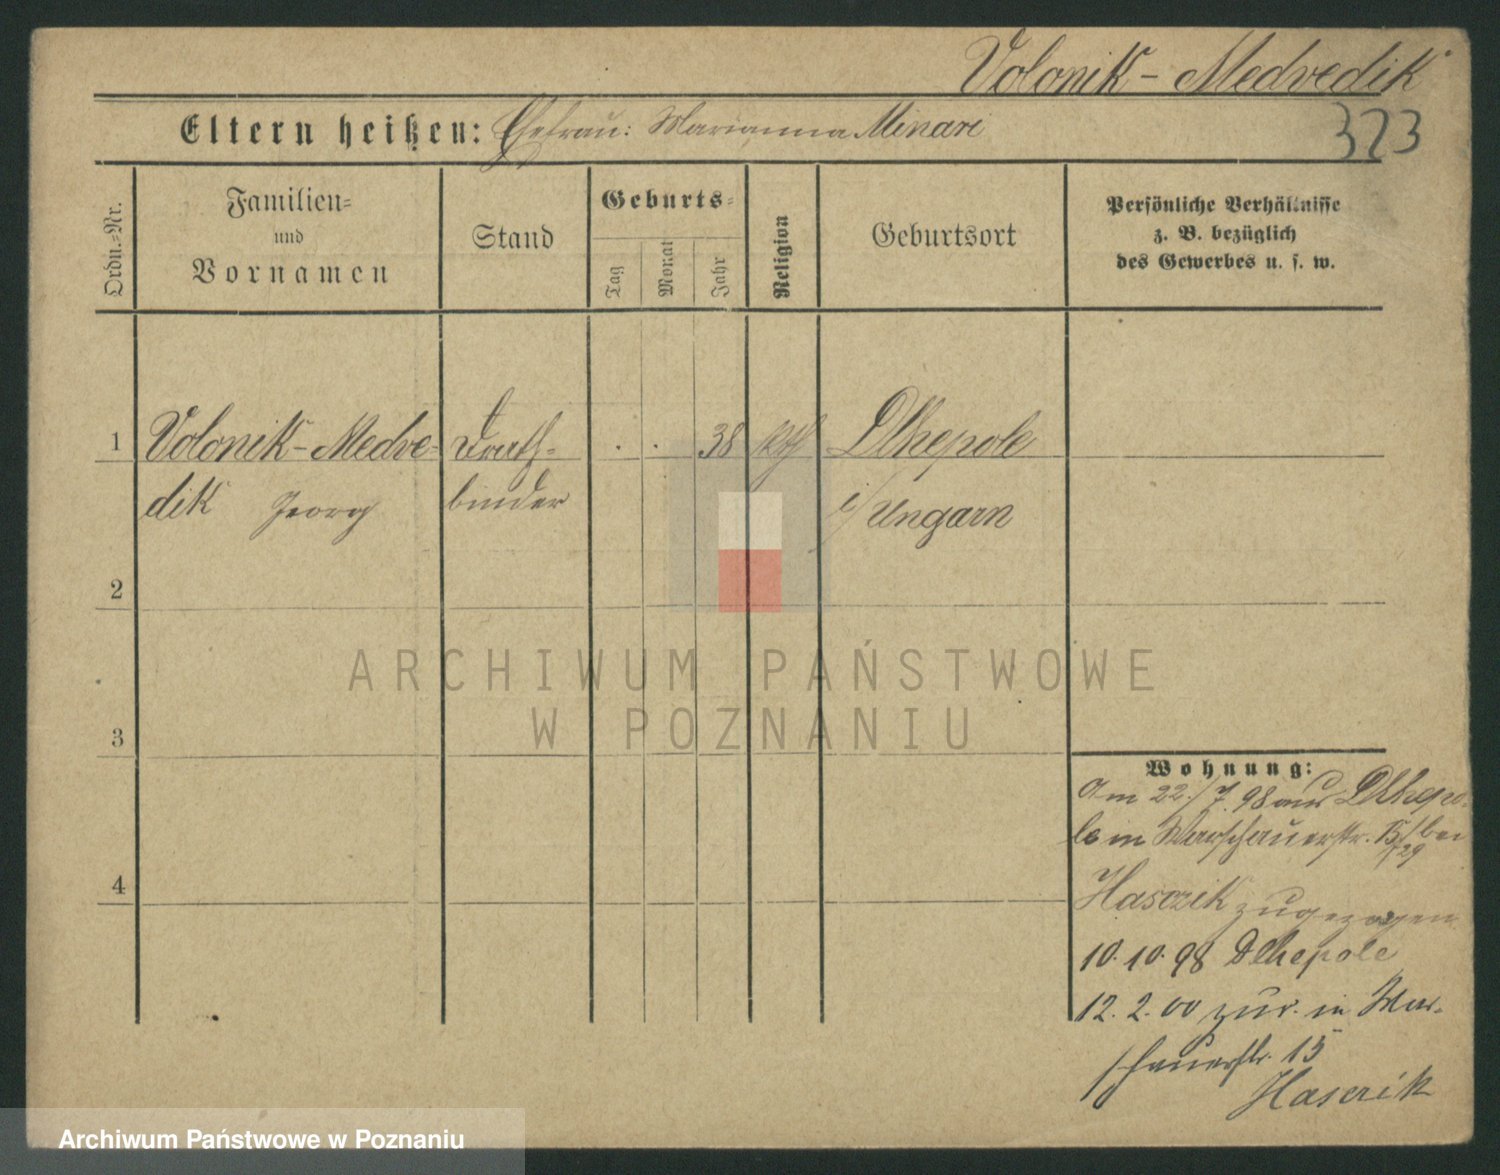 Volonik-Medvedik
Eltern heißen: Ehefrau: Marianna Minari
323
Ordn.-Nr.
Familien-
und
Vornamen
Stand
Geburts-
Tag
Monat
Jahr
Religion
Geburtsort
Persönliche Verhältnisse
z. B. bezüglich
des Gewerbes u. s. w.
1
Volonik-Medve-
dik Georg
Drath-
binder
. . 38
kth
Dlhepole
i/Ungarn
2
3
4
Wohnung:
Am 22./7. 98 aus Dlhepo-
le in Warschauerstr. 15/29 bei
Hasczik zugezogen
10.10.98 Dlhepole
12.2.00 zur. in War-
schauerstr. 15
Hasczik
ARCHIWUM PAŃSTWOWE
W POZNANIU
Archiwum Państwowe w Poznaniu